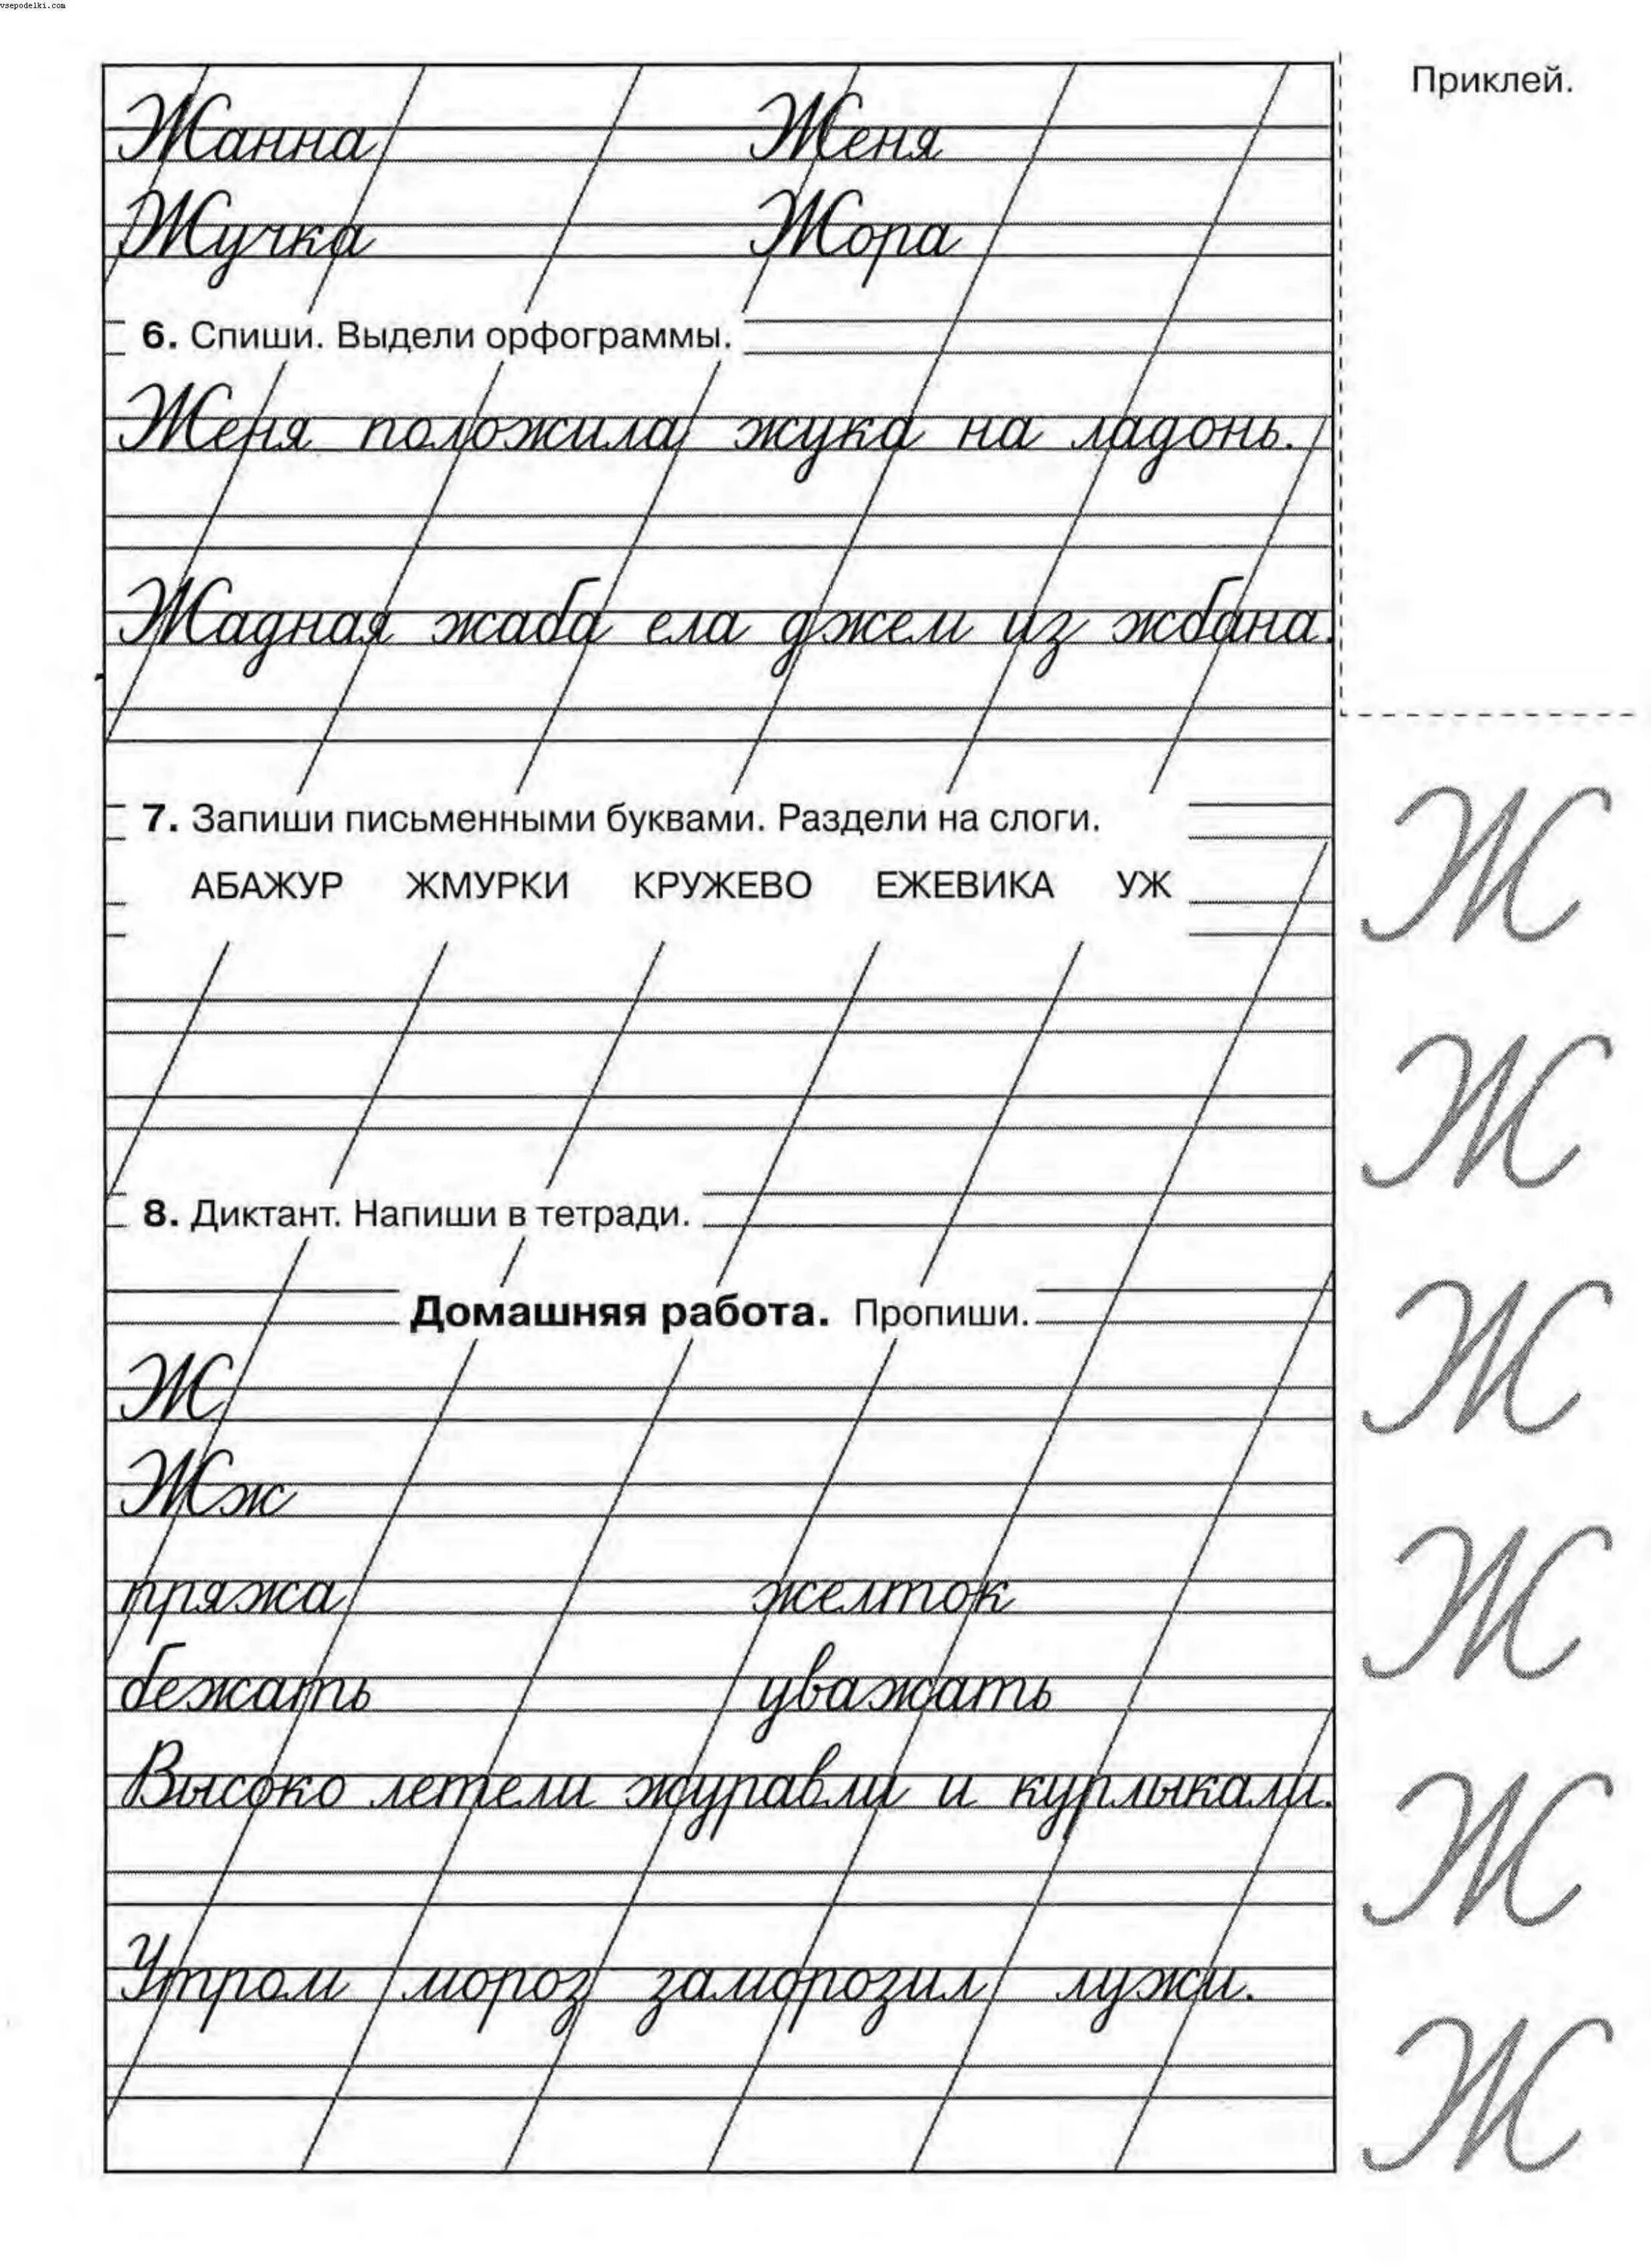 vsepodelki.com
Приклей.
Жанна Женя
Жучка Жора
6. Спиши. Выдели орфограммы.
Женя положила жука на ладонь.
Жадная жаба ела джем из жбана.
7. Запиши письменными буквами. Раздели на слоги.
АБАЖУР ЖМУРКИ КРУЖЕВО ЕЖЕВИКА УЖ
8. Диктант. Напиши в тетради.
Домашняя работа. Пропиши.
Ж
Жж
пряжа желток
бежать уважать
Высоко летели журавли и курлыкали.
Утром мороз заморозил лужи.
Ж
Ж
Ж
Ж
Ж
Ж